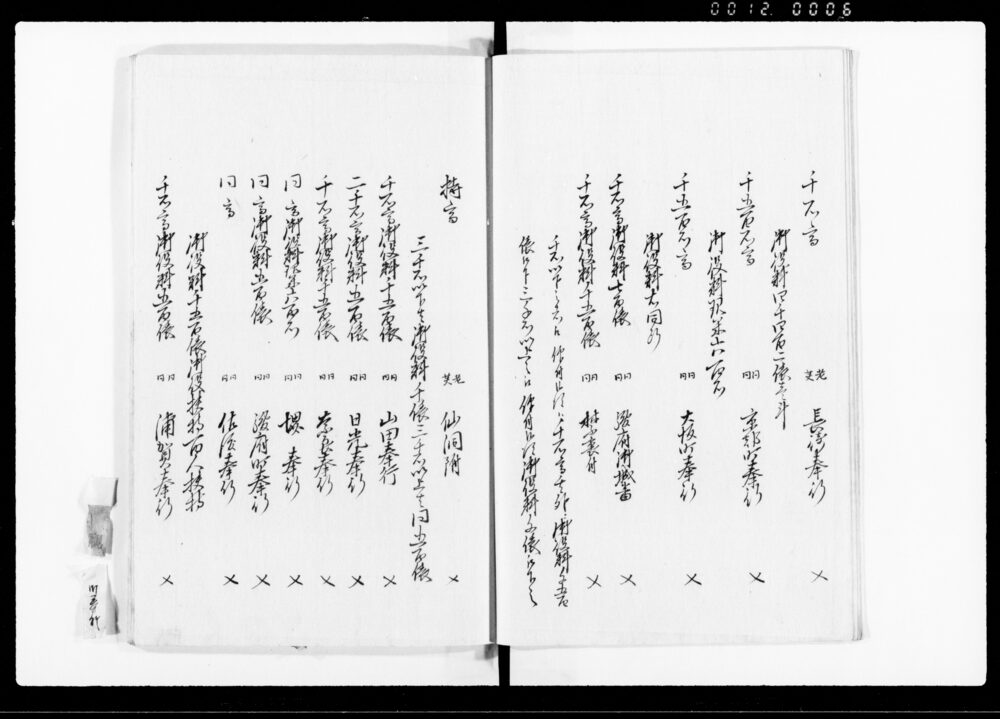 0012 0006
千石高 芙老 長崎奉行 〆
御役料四千四百二俵壱斗
千五百石高 同同 京都町奉行 〆
御役料現米六百石
千五百石高 同同 大坂町奉行 〆
御役料右同断
千石高御役料七百俵 同同 駿府御城番 〆
千石高御役料千五百俵 同同 禁裏附 〆
持高 芙老 仙洞附 〆
三千石以下は御役料千俵三千石以上は同五百俵
千石高御役料千五百俵 同同 山田奉行 〆
二千石高御役料五百俵 同同 日光奉行 〆
千石高御役料千五百俵 同同 奈良奉行 〆
同高御役料現米六百石 同同 堺奉行 〆
同高御役料五百俵 同同 駿府町奉行 〆
同高 同同 佐渡奉行 〆
御役料千五百俵御役扶持百人扶持
千石高御役料五百俵 同同 浦賀奉行 〆